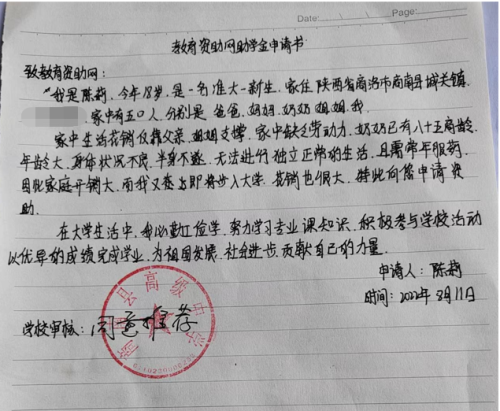 Date:
Page:
教育资助网助学金申请书
致教育资助网:
我是陈莉,今年18岁,是一名准大一新生,家住陕西省商洛市商南县城关镇
家中有五口人,分别是爸爸,妈妈,奶奶,姐姐,我
家中生活花销仅靠父亲,姐姐支撑,家中缺乏劳动力,奶奶已有八十五高龄,
年龄大,身体状况不良,半身不遂,无法进行独立正常的生活,且需常年服药,
因此家庭开销大,而我又要上即将步入大学,花销也很大,特此向您申请资
助.
在大学生活中,我必勤工俭学,努力学习专业课知识,积极参与学校活动
以优异的成绩完成学业,为祖国发展,社会进步,贡献自己的力量.
申请人:陈莉
时间:2022年8月11日
学校审核:同意推荐
县高级中学